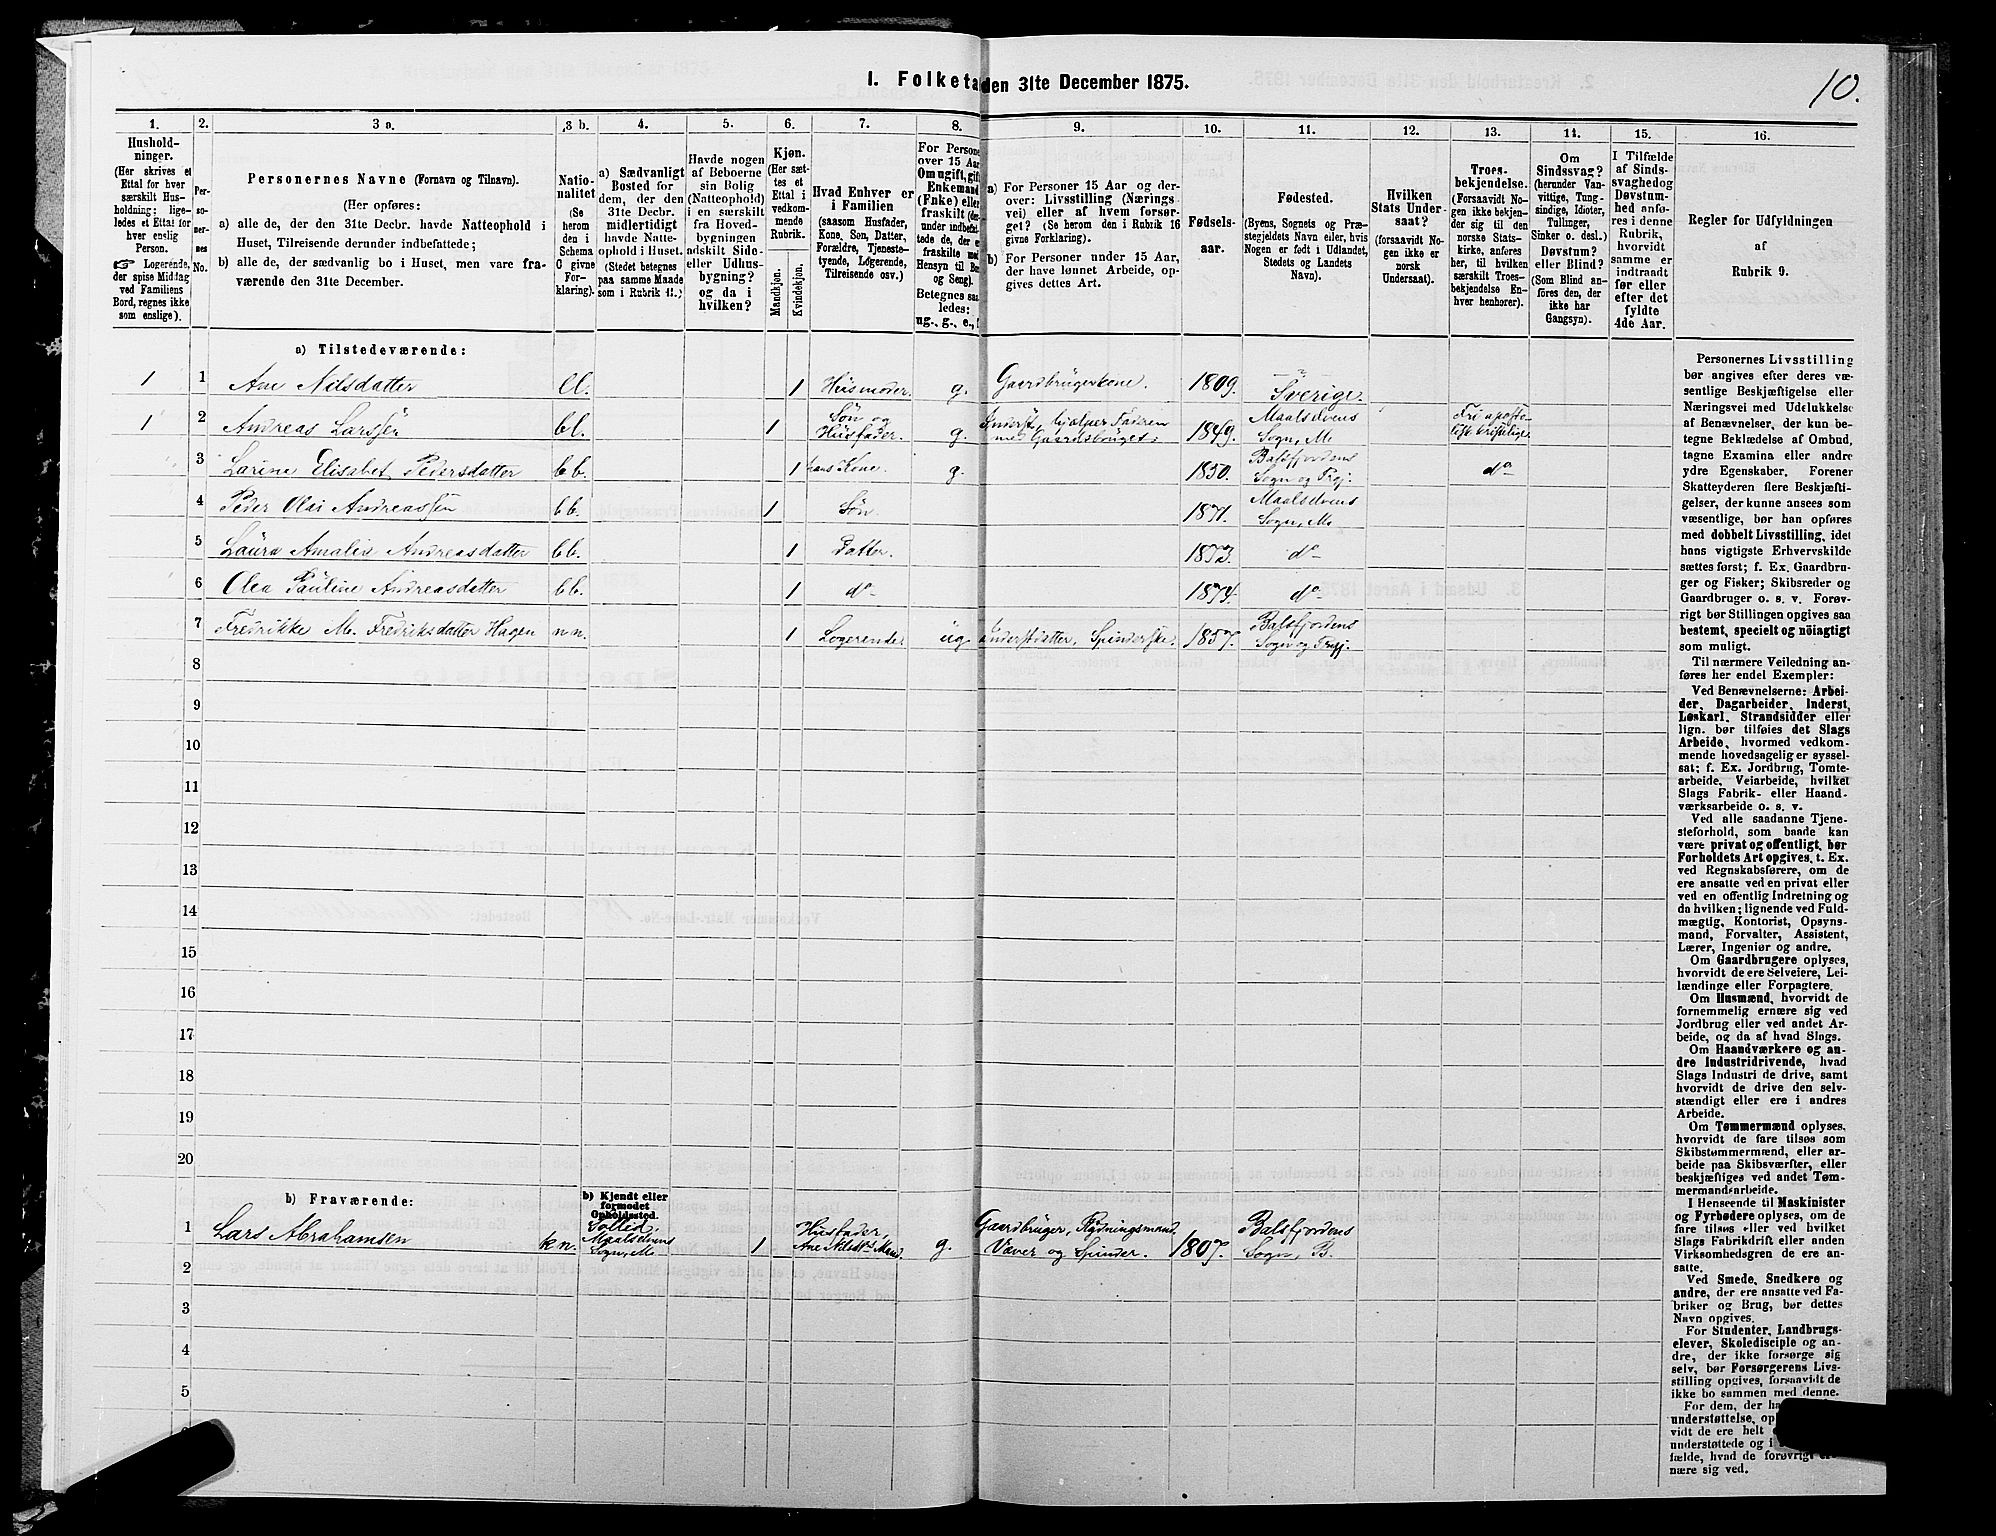 I. Folketæ den 31te December 1875.
10.
1.
Hushold-
ninger.
(Her skrives et
Ettal for hver
særskilt Hus-
holdning; lige-
ledes et Ettal for
hver enslig
Person.
Logerende,
der spise Middag
ved Familiens
Bord, regnes ikke
som enslige).
2.
Per-
so-
ner-
nes
No.
3 a.
Personernes Navne (Fornavn og Tilnavn).
(Her opføres:
a) alle de, der den 31te Decbr. havde Natteophold i
Huset, Tilreisende derunder indbefattede;
b) alle de, der sædvanlig bo i Huset, men vare fra-
værende den 31te December.
3 b.
Natio-
nalitet
(Se
herom
den i
Schema
C givne
For-
klaring).
4.
a) Sædvanligt
Bosted for
dem, der den
31te Decbr.
midlertidigt
havde Natte-
ophold i Huset.
(Stedet betegnes
paa samme Maade
som i Rubrik 11.;
5.
Havde nogen
af Beboerne
sin Bolig
(Natteophold)
i en særskilt
fra Hoved-
bygningen
adskilt Side-
eller Udhus-
bygning?
og da i
hvilken?
6.
Kjøn.
(Her sæt-
tes et
Ettal i
vedkom-
mende
Rubrik.
Mandkjøn.
Kvindekjøn.
7.
Hvad Enhver er
i Familien
(saasom Husfader,
Kone, Søn, Datter,
Forældre, Tjeneste-
tyende, Logerende,
Tilreisende osv.)
8.
For Persone
over 15 Aar
Om ugift, gift
Enkemand
(Enke) eller
fraskilt
under indbefat-
tede de, der e
fraskilte med
Hensyn til Bo
og Seng).
Betegnes saa
ledes:
ug., g., e.,
9.
a) For Personer 15 Aar og der-
over: Livsstilling (Nærings-
vei) eller af hvem forsør-
get? (Se herom den i Rubrik 16
givne Forklaring).
b) For Personer under 15 Aar,
der have lønnet Arbeide, op-
gives dettes Art.
10.
Fødsels-
aar.
11.
Fødested.
(Byens, Sognets og Præ-
stegjeldets Navn eller, hvis
Nogen er født i Udlandet,
Stedets og Landets
Navn).
12.
Hvilken
Stats Under-
saat?
(forsaavidt No-
gen ikke er
norsk
Undersaat).
13.
Troes-
bekjendelse.
(Forsaavidt No-
gen ikke bekjen-
der sig til den
norske Stats-
kirke, anføres
her, til hvilken
særskilt Troes-
bekjendelse En-
hver henhører).
14.
Om
Sindssvag?
(herunder Van-
vittige, Tung-
sindige, Idioter,
Tullinger,
Sinker o. desl.)
Døvstum?
eller Blind?
(Som Blind an-
føres den, der
ikke har
Gangsyn).
15.
I Tilfælde
af Sinds-
svaghed og
Døvstum-
hed anfø-
res i denne
Rubrik,
hvorvidt
samme er
indtraadt
før eller
efter det
fyldte
4de Aar.
16.
Regler for Udfyldningen
af
Rubrik 9.
a) Tilstedeværende:
1 1 Ane Nilsdatter ll. 1 Husmoder. g. Gaardbrugerkone. 1809. Sverige.
1 2 Andreas Larssen bl. 1 Søn og Husfader. g. Inderst, hjælper Faderen med Gaardsbruget. 1849. Maalselvens Sogn, M. Fri aposto-
3 Larine Elisabet Pedersdatter bb. 1 hans Kone. g. 1850. Balsfjordens Sogn og Præj. do
4 Peder Olai Andreassen bb. 1 Søn. 1871. Maalselvens Sogn, M.
5 Laura Amalie Andreasdatter bb. 1 Datter. 1873. do
6 Olea Pauline Andreasdatter bb. 1 do 1874. do
7 Fredrikke M. Fredriksdatter Hagen n.n. 1 Logerende ug. Inderstdatter, Spinderske. 1857. Balsfjordens Sogn og Præj.
8
9
10
11
12
13
14
15
16
17
18
19
20
b) Fraværende:
b) Kjendt eller
formodet
Opholdssted.
1 Lars Abrahamsen k n. Sollid, Maalselvens Sogn, M. 1 Husfader, Ane Nilsd.s Mand g. Gaardbruger, Rydningsmand, Væver og Spinder. 1807. Balsfjordens Sogn, B.
2
3
4
5
Personernes Livsstilling
bør angives efter deres væ-
sentlige Beskjæftigelse eller
Næringsvei med Udelukkelse
af Benævnelser, der kun be-
tegne Beklædelse af Ombud,
tagne Examina eller andre
ydre Egenskaber. Forener
Skatteyderen flere Beskjæfti-
gelser, der kunne ansees som
væsentlige, bør han opføres
med dobbelt Livsstilling, idet
hans vigtigste Erhvervskilde
sættes først; f. Ex. Gaardbru-
ger og Fisker; Skibsreder og
Gaardbruger o. s. v. Forøv-
rigt bør Stillingen opgives saa
bestemt, specielt og nøiagtigt
som muligt.
Til nærmere Veiledning an-
føres her endel Exempler:
Ved Benævnelserne: Arbei-
der, Dagarbeider, Inderst,
Løskarl, Strandsidder eller
lign. bør tilføies det Slags
Arbeide, hvormed vedkom-
mende hovedsagelig er syssel-
sat; f. Ex. Jordbrug, Tomte-
arbeide, Veiarbeide, hvilket
Slags Fabrik- eller Haand-
værksarbeide o. s. v.
Ved alle saadanne Tjene-
steforhold, som baade kan
være privat og offentligt, bør
Forholdets Art opgives, t. Ex.
ved Regnskabsførere, om de
ere ansatte ved en privat eller
ved en offentlig Indretning og
da hvilken; lignende ved Fuld-
mægtig, Kontorist, Opsyns-
mand, Forvalter, Assistent,
Lærer, Ingeniør og andre.
Om Gaardbrugere oplyses,
hvorvidt de ere Selveiere, Lei-
lændinge eller Forpagtere.
Om Husmænd, hvorvidt de
fornemmelig ernære sig ved
Jordbrug eller ved andet Ar-
beide, og da af hvad Slags.
Om Haandværkere og an-
dre Industridrivende, hvad
Slags Industri de drive, samt
hvorvidt de drive den selv-
stændigt eller ere i andres
Arbeide.
Om Tømmermænd oplyses,
hvorvidt de fare tilsøs som
Skibstømmermænd, eller ar-
beide paa Skibsværfter, eller
beskjæftiges ved andet Tøm-
mermandsarbeide.
I Henseende til Maskinister
og Fyrbødere oplyses, om de
fare tilsøs eller ved hvilket
Slags Fabrikdrift eller anden
Virksomhed de ere an-
satte.
Ved Smede, Snedkere og
andre, der ere ansatte ved Fa-
briker og Brug, bør dettes
Navn opgives.
For Studenter, Landbrugs-
elever, Skoledisciple og an-
dre, der ikke forsørge sig
selv, bør Forsørgerens Livs-
stilling opgives, forsaavidt de
ikke bo sammen med denne.
For dem, der ha
understøttelse, op
vidt de ere helt
understøttede og i
fælde, hvad de forøvrigt er-
nære sig ved.